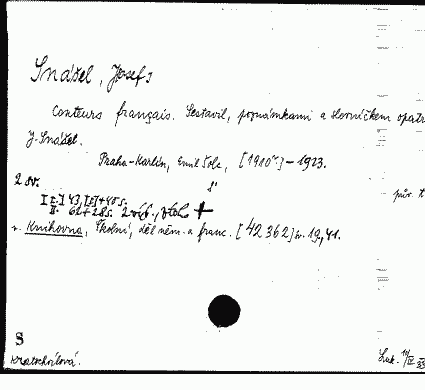 Snášel, Josef J
Conteurs français. Sestavil, poznámkami a slovníčkem opatř
J. Snášel.
Praha-Karlín, Emil Šolc, [1910"]-1923.
2 sv.
8°
pův. t
[I.] 43,[I]+40 s.
II. 62+28 s. 2 vid.,
v. Knihovna, Školní, děl něm. a franc. [42362] sv. 19, 41.
S
Kratochvílová.
Luk. 14/IV 33